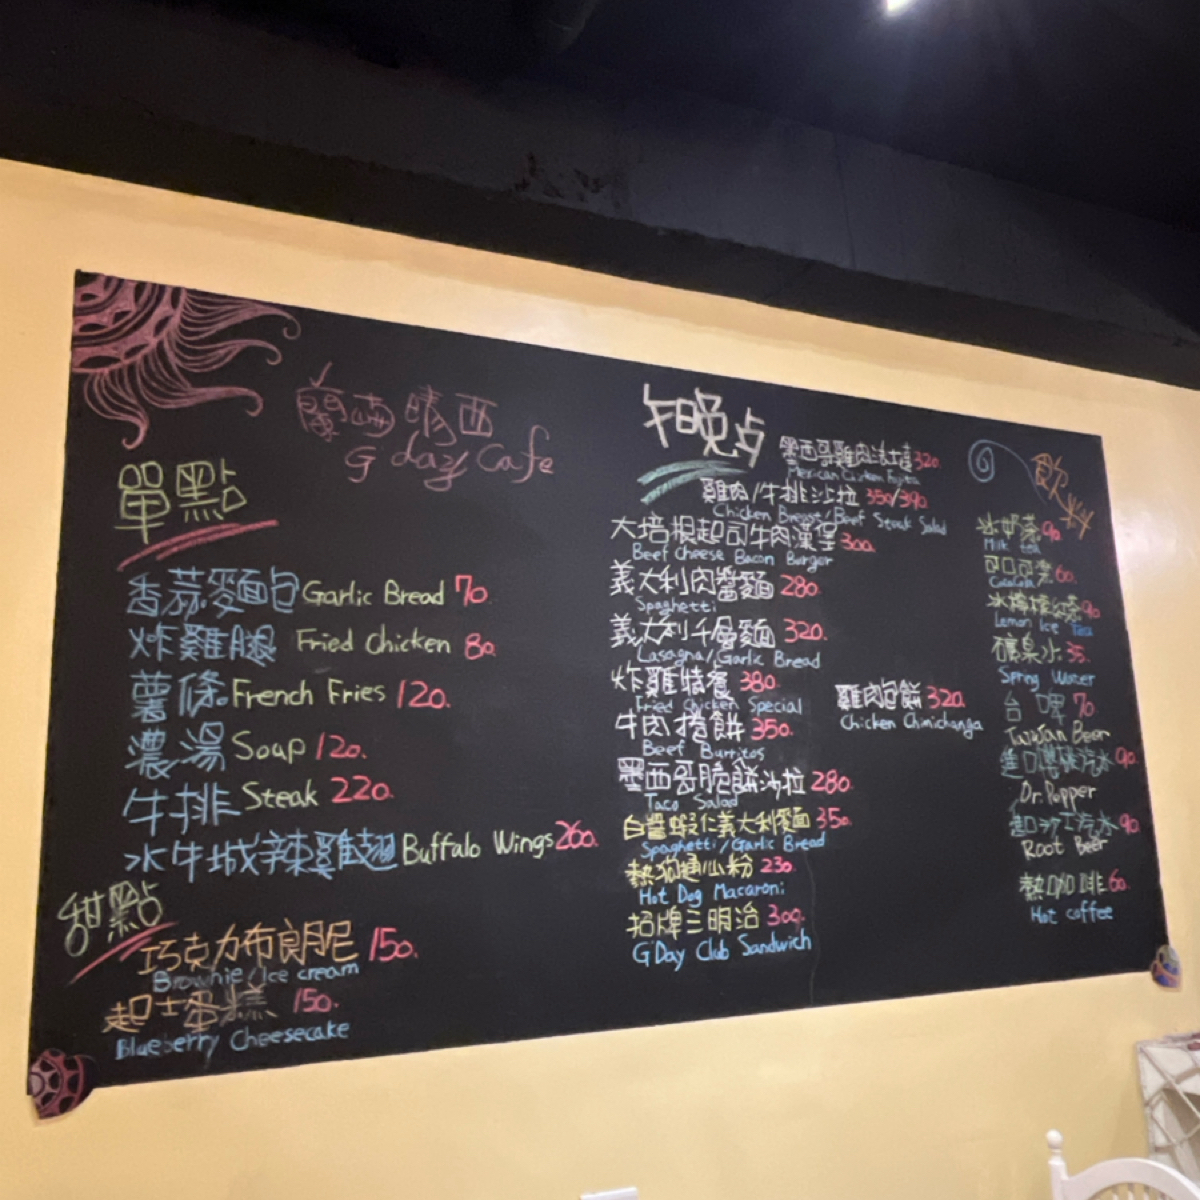 蘭嶼晴西
G day Cafe
單點
香蒜麵包 Garlic Bread 70.
炸雞腿 Fried Chicken 80.
薯條 French Fries 120.
濃湯 Soup 120.
牛排 Steak 220.
水牛城辣雞翅 Buffalo Wings 260.
甜點
巧克力布朗尼 150.
Brownie/Ice cream
起士蛋糕 150.
Blueberry Cheesecake
午晚点
墨西哥雞肉法士達 320.
Mexican Chicken Fajita
雞肉/牛排沙拉 350/390.
Chicken Breast/Beef Steak Salad
大培根起司牛肉漢堡 300.
Beef Cheese Bacon Burger
義大利肉醬麵 280.
Spaghetti
義大利千層麵 320.
Lasagna/Garlic Bread
炸雞特餐 380.
Fried Chicken Special
牛肉捲餅 350.
Beef Burritos
墨西哥脆餅沙拉 280.
Taco Salad
白醬蝦仁義大利麵 350.
Spaghetti/Garlic Bread
熱狗通心粉 230.
Hot Dog Macaroni
招牌三明治 300.
G'Day Club Sandwich
雞肉包餅 320.
Chicken Chimichanga
飲料
冰奶茶 90.
Milk tea
可口可樂 60.
CocaCola
冰檸檬紅茶 90.
Lemon Ice Tea
礦泉水 35.
Spring Water
台啤 70.
Taiwan Beer
進口櫻桃汽水 90.
Dr. Pepper
90.
Root Beer
熱咖啡 60.
Hot coffee